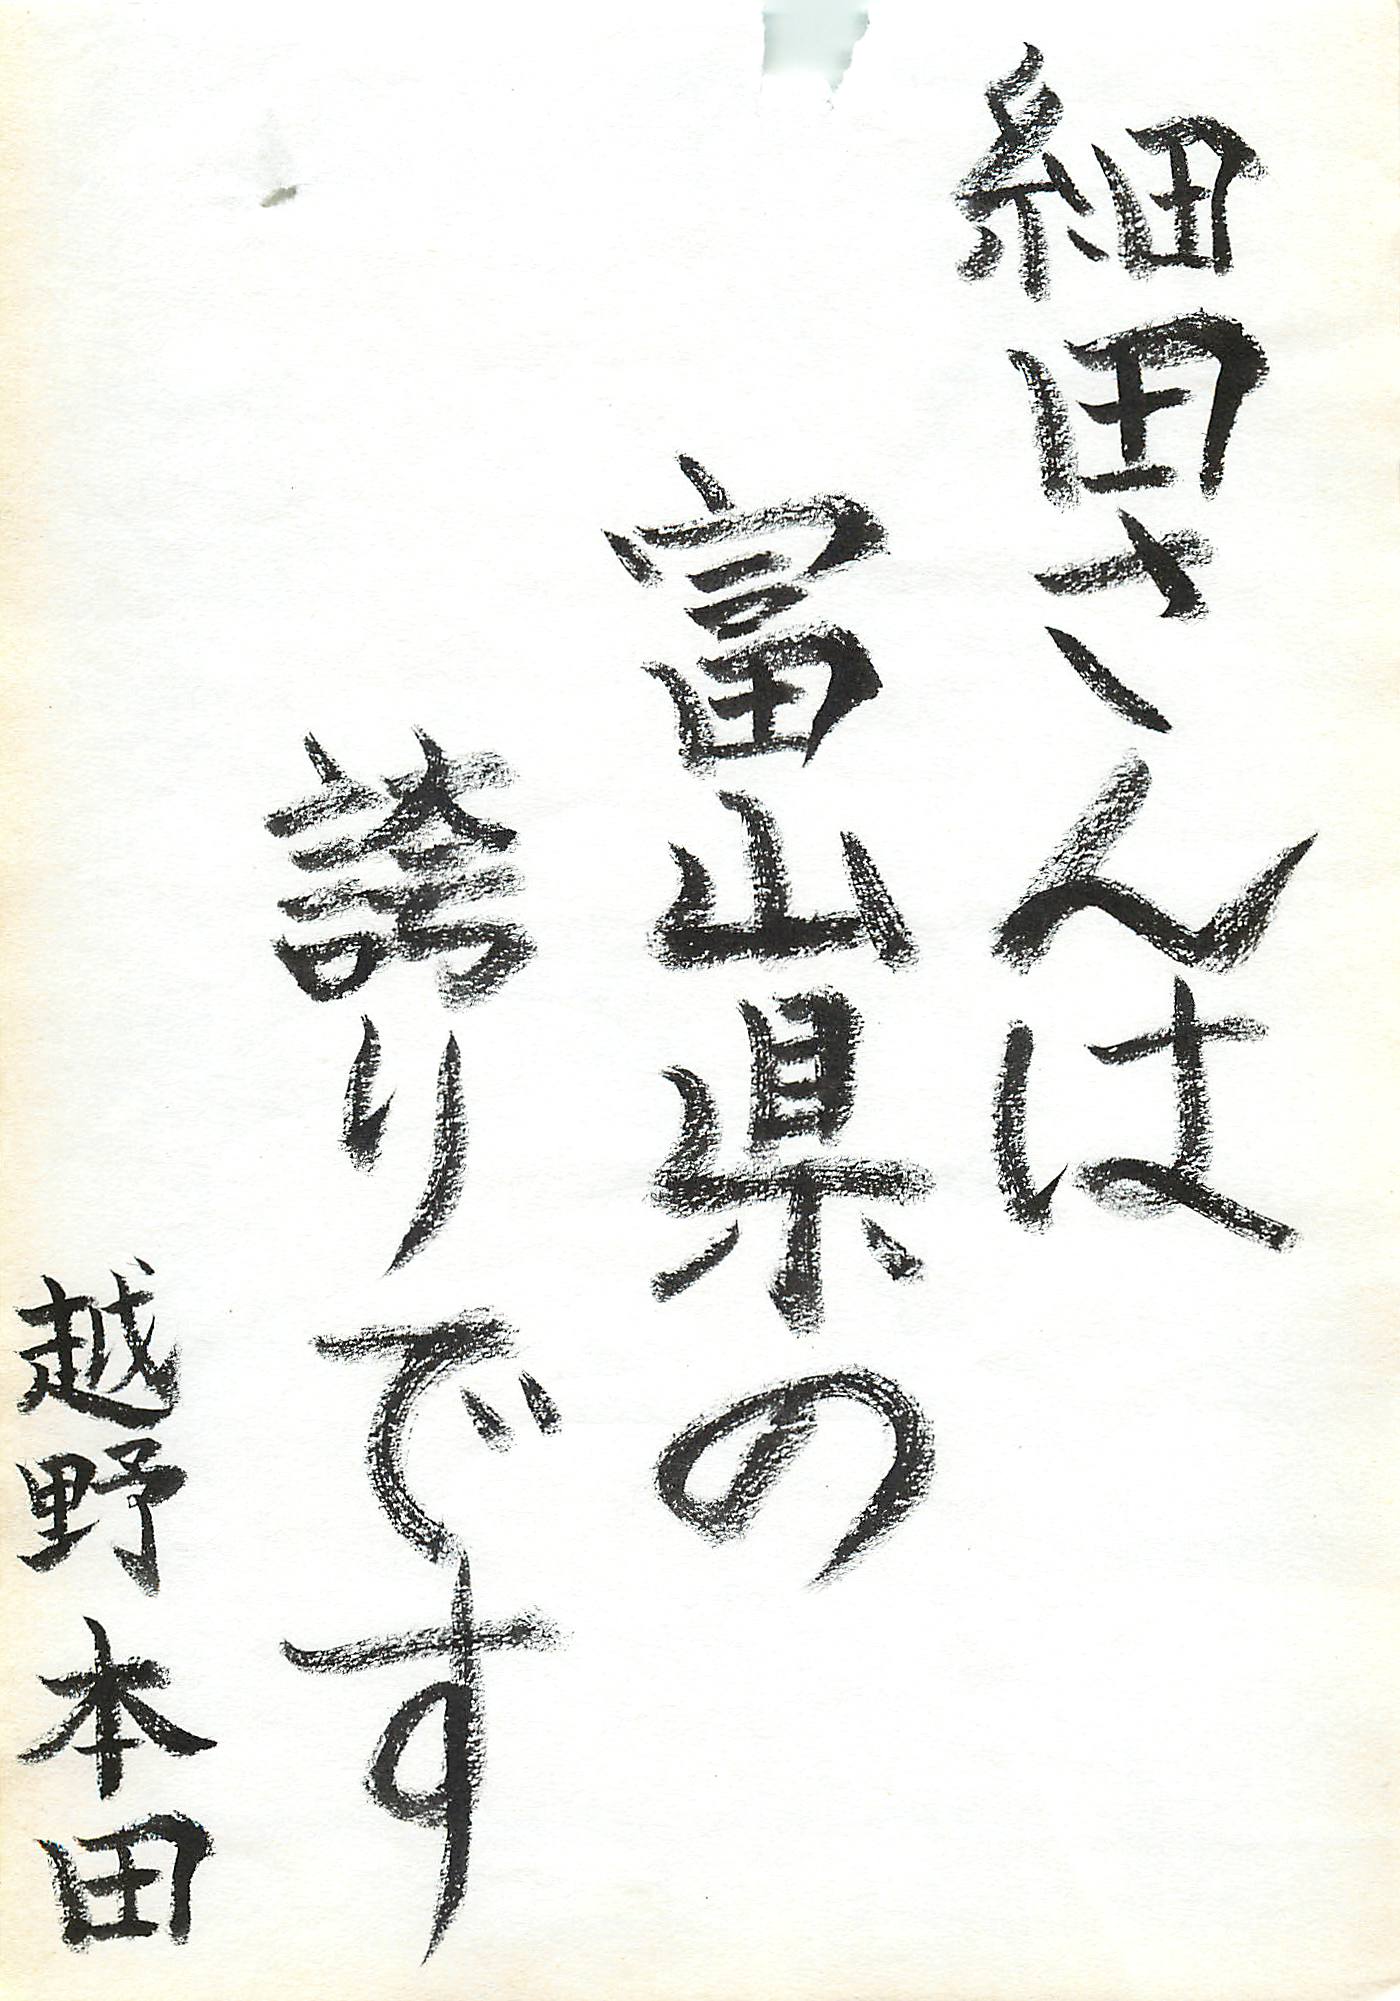 細田さんは
富山県の
誇りです
越野本田